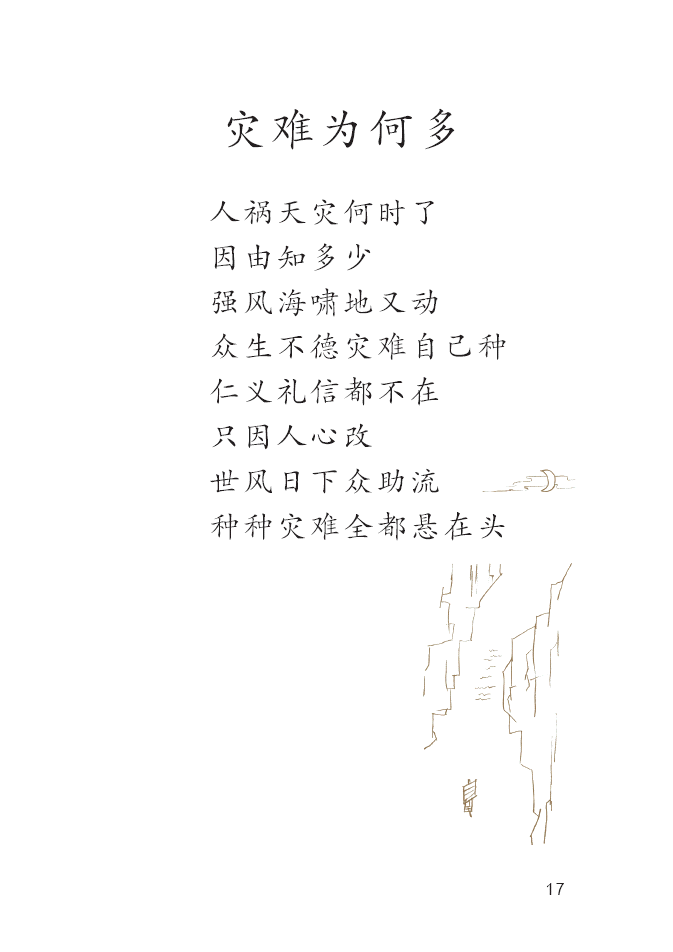 灾难为何多
人祸天灾何时了
因由知多少
强风海啸地又动
众生不德灾难自己种
仁义礼信都不在
只因人心改
世风日下众助流
种种灾难全都悬在头
17